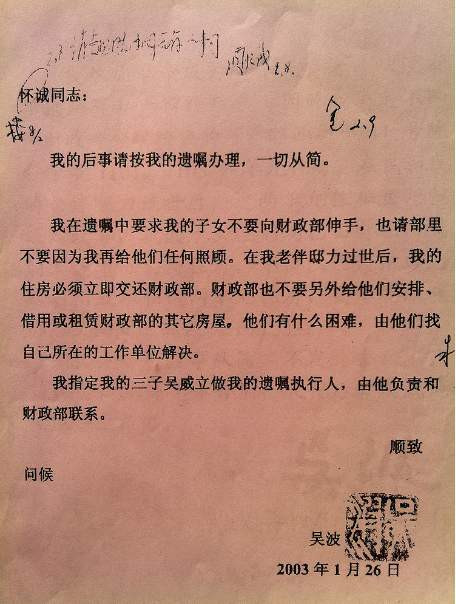 怀诚同志：
我的后事请按我的遗嘱办理，一切从简。
我在遗嘱中要求我的子女不要向财政部伸手，也请部里
不要因为我再给他们任何照顾。在我老伴邸力过世后，我的
住房必须立即交还财政部。财政部也不要另外给他们安排、
借用或租赁财政部的其它房屋。他们有什么困难，由他们找
自己所在的工作单位解决。
我指定我的三子吴威立做我的遗嘱执行人，由他负责和
财政部联系。
顺致
问候
吴波
2003 年 1 月 26 日